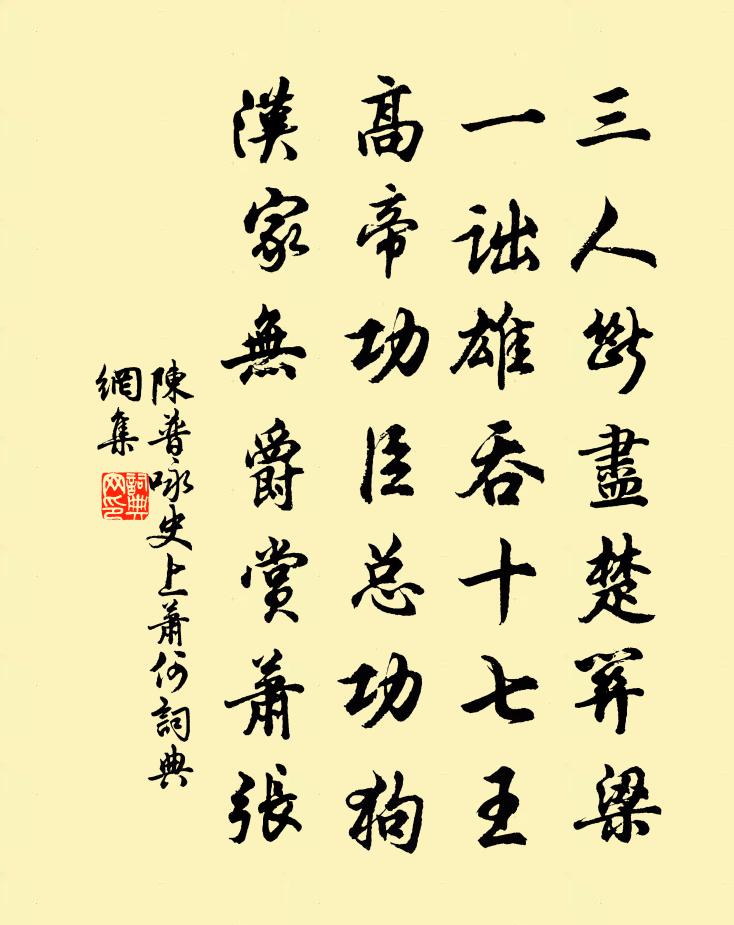 三人斷盡楚關梁
一詘雄吞十七王
高帝功臣总功狗
漢家無爵賞蕭張
陳普咏史上蕭何詞典
網集
詞典
网印